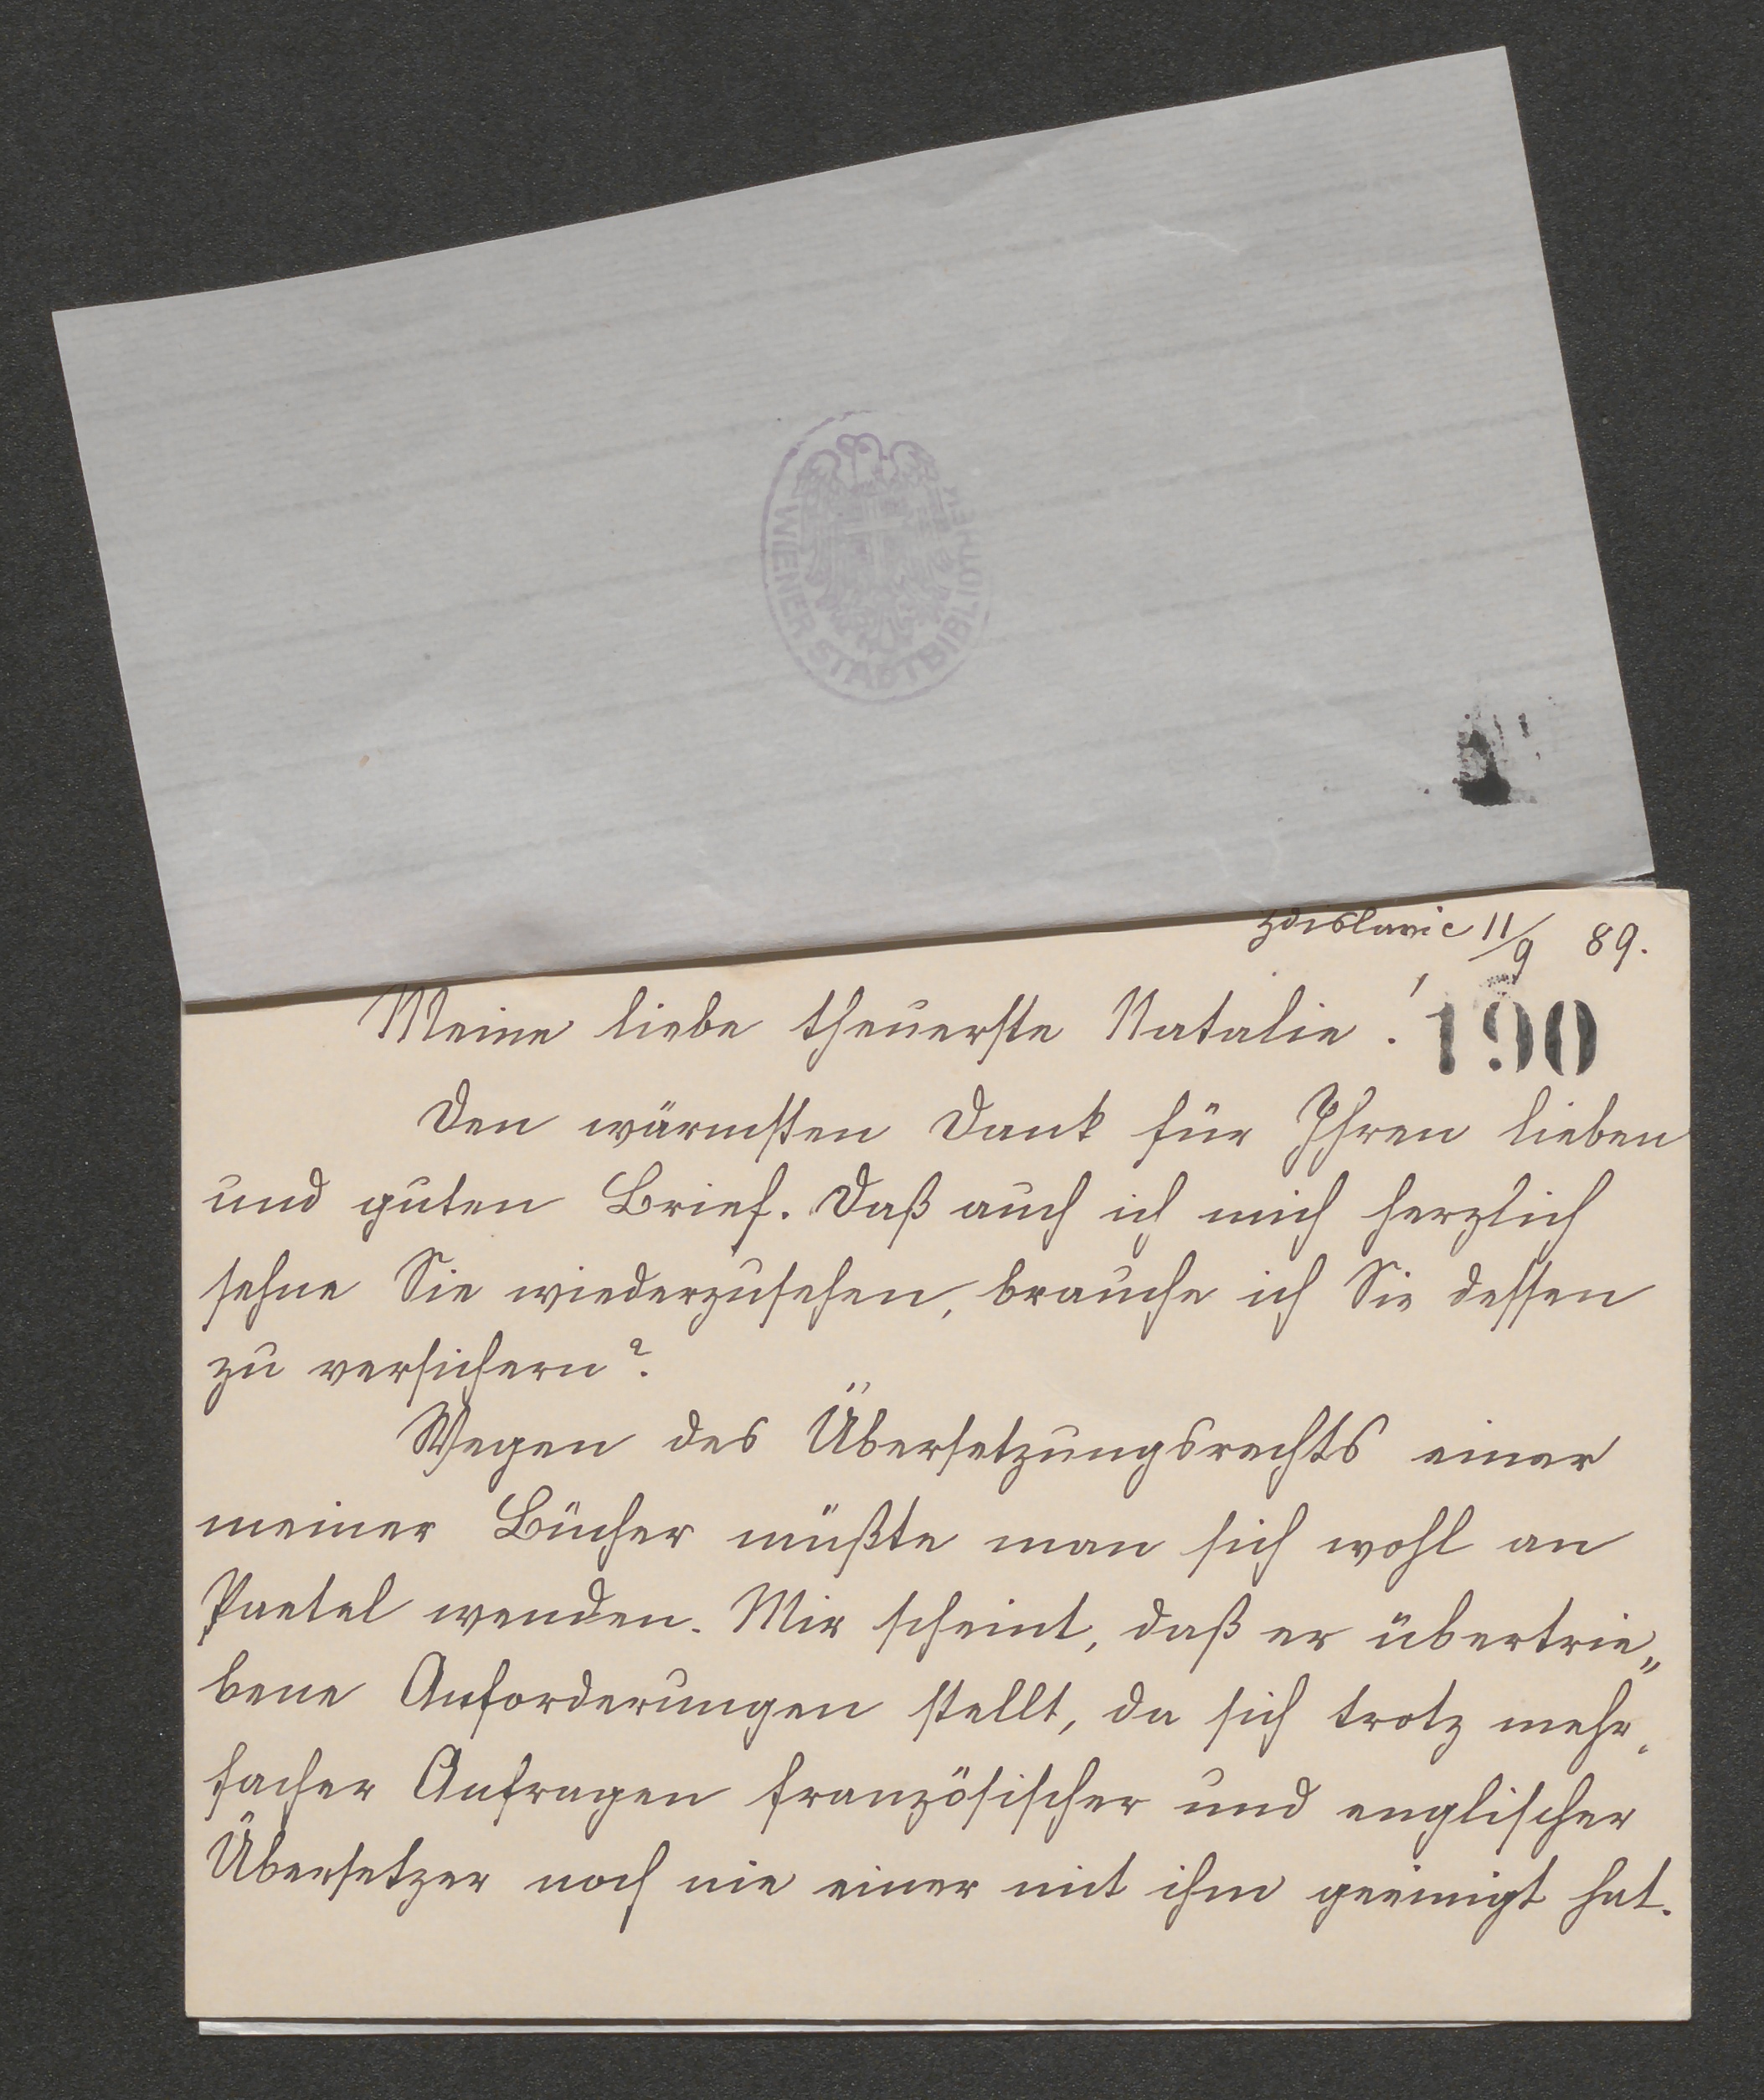 WIENER STADTBIBLIOTHEK
Zdislavic 11/9 89.
Meine liebe theuerste Natalie!
190
Den wärmsten Dank für Ihren lieben
und guten Brief. Daß auch ich mich herzlich
sehne Sie wiederzusehen, brauche ich Sie dessen
zu versichern?
Wegen des Übersetzungsrechts einer
meiner Bücher müßte man sich wohl an
Paetel wenden. Mir scheint, daß er übertrie„
bene Anforderungen stellt, da sich trotz mehr„
facher Anfragen französischer und englischer
Übersetzer noch nie einer mit ihm geeinigt hat.